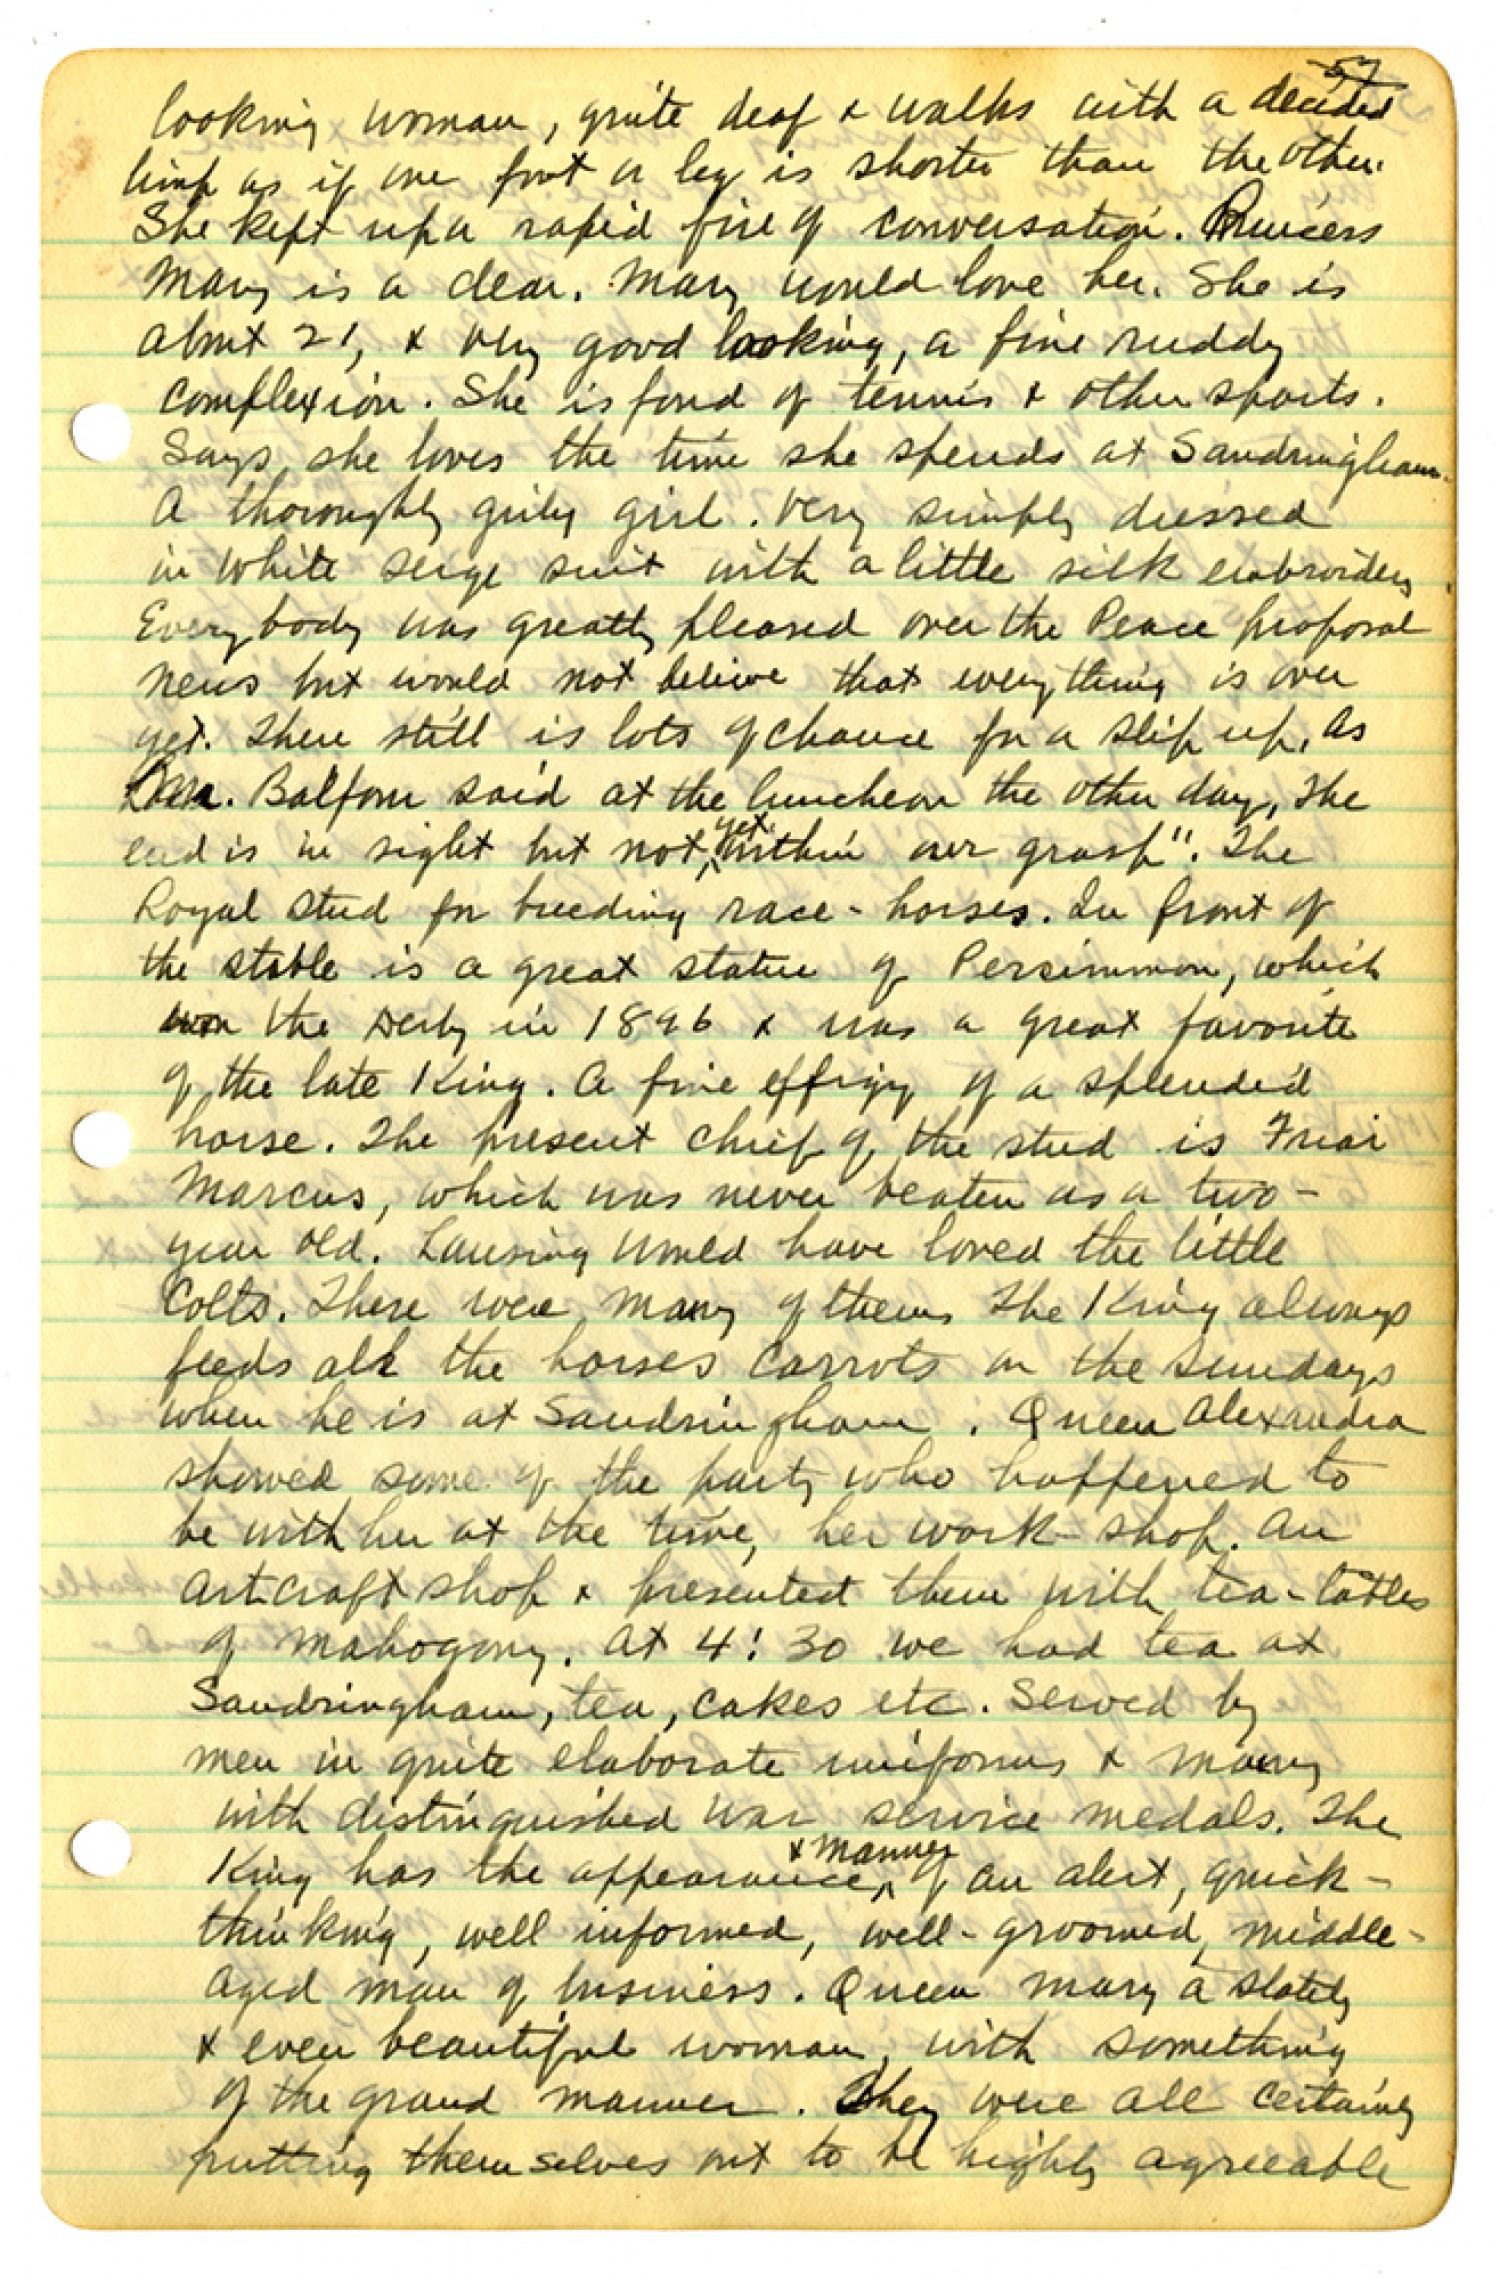 57
looking woman, quite deaf & walks with a decided
limp as if one foot or leg is shorter than the other.
She kept up a rapid fire of conversation. Princess
Mary is a dear. Mary would love her. She is
about 21, & very good looking, a fine ruddy
complexion. She is fond of tennis & other sports.
Says she loves the time she spends at Sandringham.
A thoroughly girly girl. Very simply dressed
in white serge suit with a little silk embroidery.
Everybody was greatly pleased over the Peace proposal
news but would not believe that everything is over
yet. There still is lots of chance for a slip up. As
Balfour said at the luncheon the other day, The
end is in sight but not yet within our grasp". The
Royal stud for breeding race-horses. In front of
the stable is a great statue of Persimmon, which
won the Derby in 1896 & was a great favorite
of the late King. A fine effigy of a splendid
horse. The present chief of the stud is Friar
Marcus, which was never beaten as a two-
year old. Lansing would have loved the little
Colts. There were many of them. The King always
feeds all the horses carrots on the Sundays
when he is at Sandringham. Queen Alexandra
showed some of the party who happened to
be with her at the time, her work-shop. An
art craft shop & presented them with tea-tables
of mahogony. At 4:30 we had tea at
Sandringham, tea, cakes etc. Served by
men in quite elaborate uniforms & many
with distinguished war service medals. The
King has the appearance & manner of an alert, quick-
thinking, well informed, well-groomed, middle-
aged man of business. Queen Mary a stately
& even beautiful woman, with something
of the grand manner. They were all certainly
putting themselves out to be highly agreeable